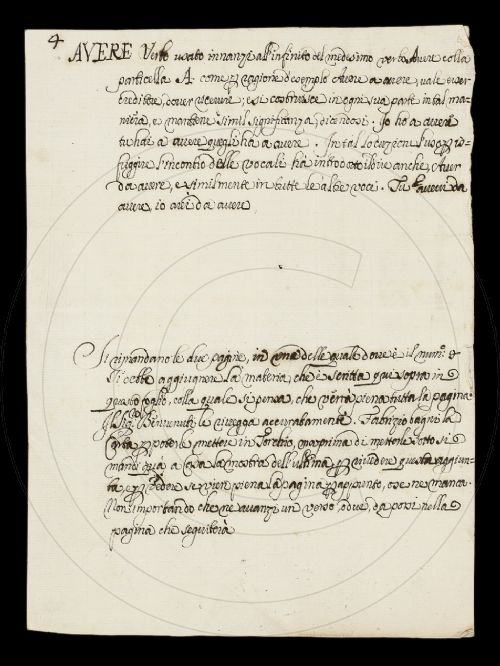 4
AVERE Verbo usato innanzi all'infinito del medesimo verbo Avere colla
particella A. come per cagione d'esempio Avere a avere, vale esser
creditore, dover ricevere; e si costruisce in ogni sua parte in tal ma-
niera, e mantiene simil significanza, dicendosi. Io ho a avere
tu hai a avere quegli ha a avere. In tal locuzione l'uso per is-
fuggire l'incontro delle vocali ha introdotto il dire anche, Aver
da avere, e similmente in tutte le altre voci. Tu avevi da
avere, io avrei da avere
Si rimandano le due pagine, in una delle quale dove è il num.
Si debbe aggiugnere la materia, che è scritta qui sopra in
questo foglio, colla quale si pensa, che verrà piena tutta la pagina
Il Sig. Benvenuti le rivegga accuratamente. Fabrizio bagni la
Carta per poterle mettere in Torchio, ma prima di metterle sotto si
mandi qua a casa la mostra dell'ultima, per rivedere questa aggiun-
ta, e per vedere se vien piena la pagina per appunto, o se ne manca.
Non importando che ne avanzi un verso, o due, da porsi nella
pagina che seguiterà